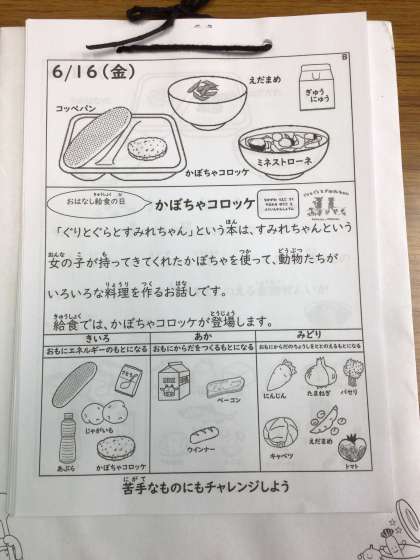 B
6/16(金)
えだまめ
ぎゅうにゅう
コッペパン
ミネストローネ
かぼちゃコロッケ
おはなし給食の日
かぼちゃコロッケ
「ぐりとぐらとすみれちゃん」という本は、すみれちゃんという
女の子が持ってきてくれたかぼちゃを使って、動物たちが
いろいろな料理を作るお話しです。
給食では、かぼちゃコロッケが登場します。
きいろ
あか
みどり
おもにエネルギーのもとになる
おもにからだをつくるもとになる
おもにからだのちょうしをととのえるもとになる
さとう
じゃがいも
あぶら
かぼちゃコロッケ
ベーコン
ウインナー
にんじん
たまねぎ
パセリ
キャベツ
えだまめ
トマト
苦手なものにもチャレンジしよう